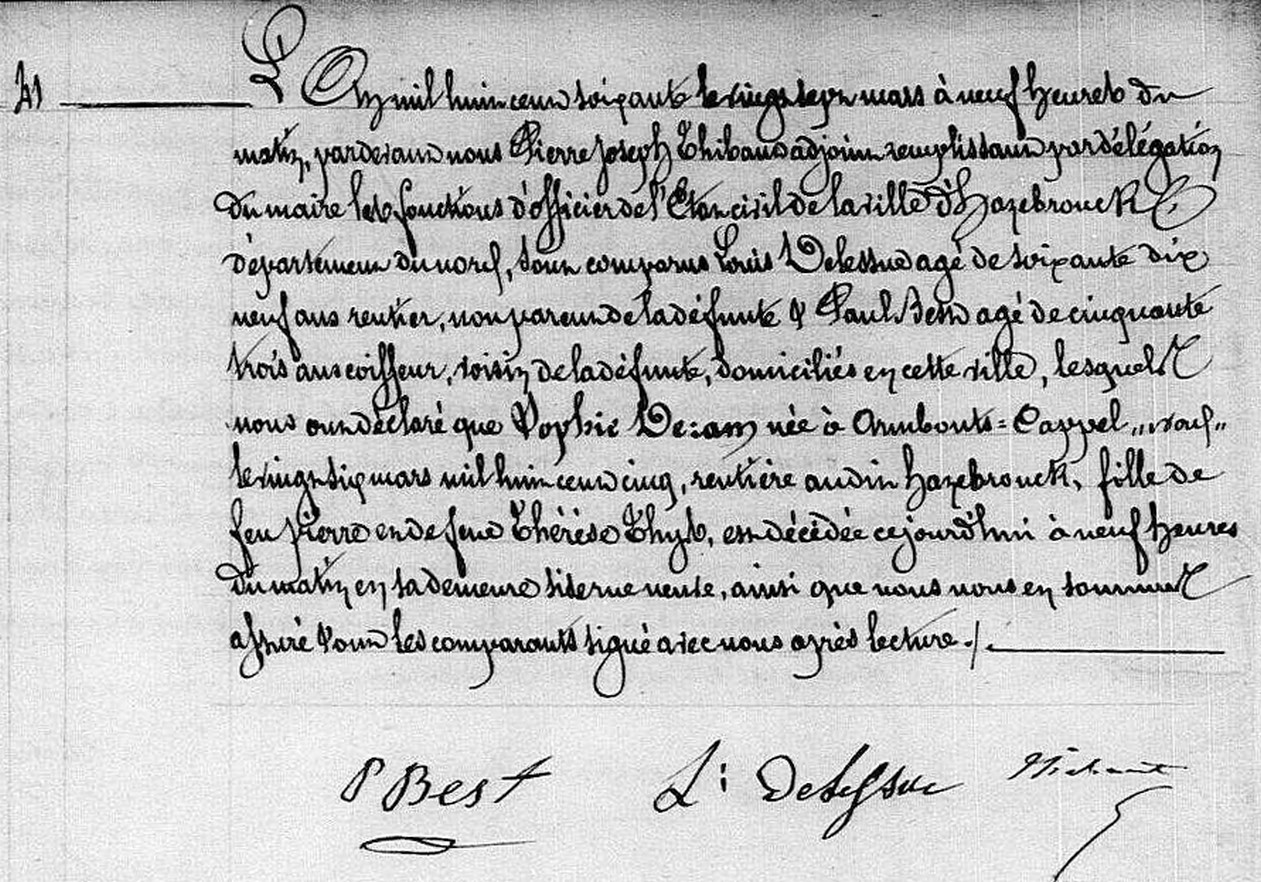 41 L'An mil huit cent soixante le vingt sept mars à neuf heures du
matin, pardevant nous Pierre Joseph Thibaut adjoint remplissant par délégation
du maire les fonctions d'officier de l'Etat civil de la ville d'Hazebrouck
département du nord, sont comparus Louis Delessue agé de soixante dix
neuf ans rentier, non parent de la défunte & Paul Best agé de cinquante
trois ans coiffeur, voisin de la défunte, domiciliés en cette ville, lesquels
nous ont déclaré que Sophie Dezam née à Armbouts=Cappel "nord"
le vingt six mars mil huit cent cinq, rentière audit hazebrouck, fille de
feu pierre et de feue Thérèse Thys, est décédée cejourd'hui à neuf heures
du matin en sa demeure sise rue neuve, ainsi que nous nous en sommes
assuré & ont les comparants signé avec nous après lecture ./.
P Best L: Delessue Thibaut